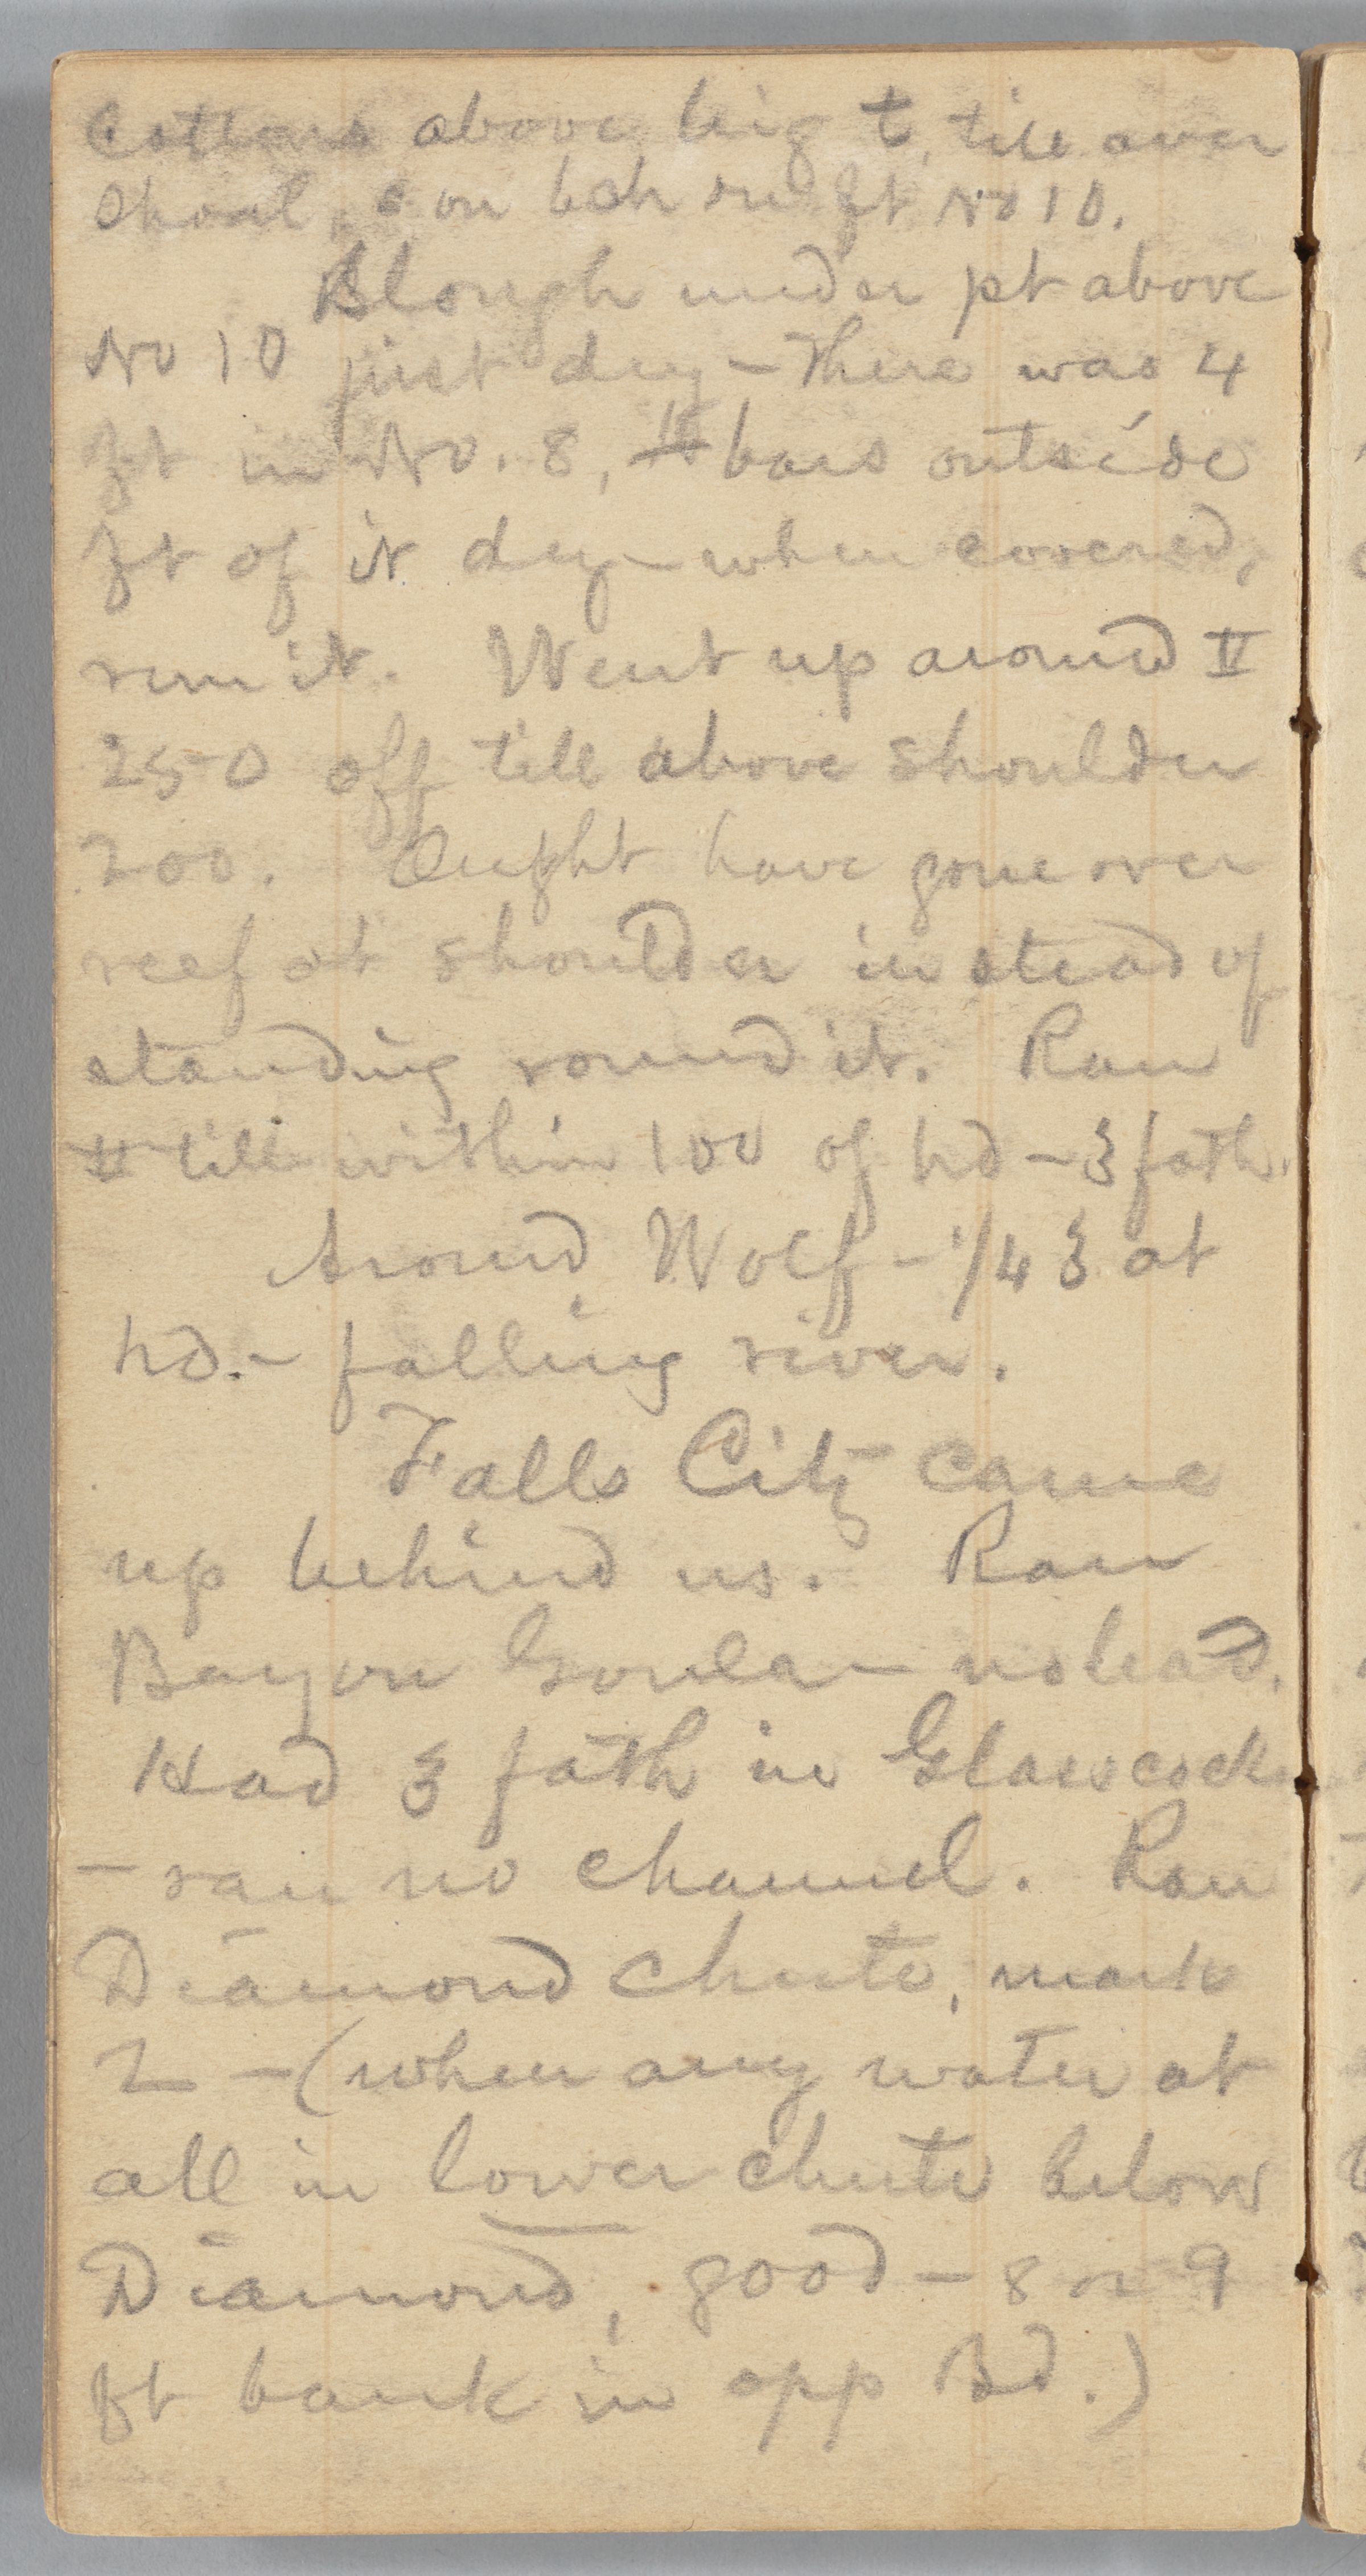 Cottons above big t, till over
shoal, & on bch ru ft No 10.
Slough under pt above
No 10 just dry – There was 4
ft in No. 8, bars outside
ft of it dry – when covered,
run it. Went up around II
250 off till above shoulder
200. Ought have gone over
reef at shoulder instead of
standing round it. Ran
II till within 100 of hd – 3 fath.
Around Wolf – 1/4 3 at
hd. – falling river.
Falls City came
up behind us. Ran
Bayou Goula – no lead.
Had 3 fath in Glasscock
– ran no channel. Ran
Diamond chute, mark
2 – (when any water at
all in lower chute below
Diamond, good – 8 or 9
ft bank in opp Bd.)